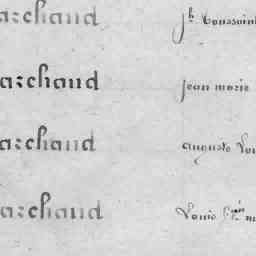 archand jh toussaint
archand jean marie
archand auguste Lou
archand Louis